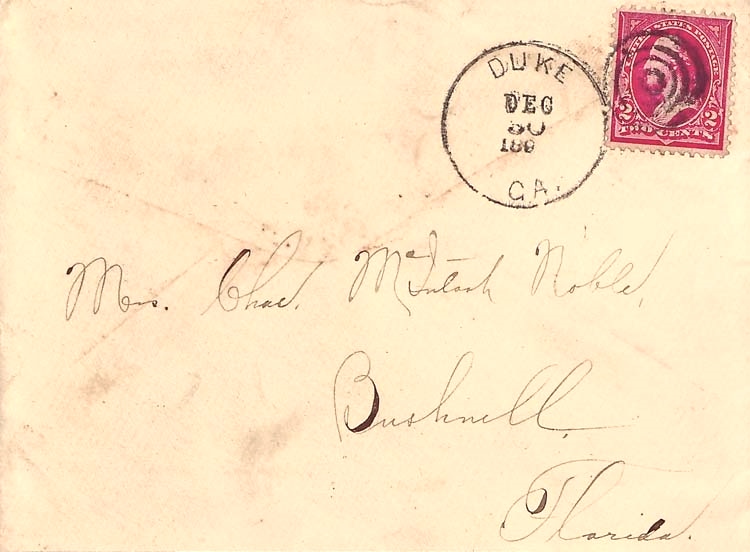 DUKE
DEC
30
189
GA.
UNITED STATES POSTAGE
2 2
TWO CENTS
Mrs. Chas. McIntosh Noble,
Bushnell,
Florida.